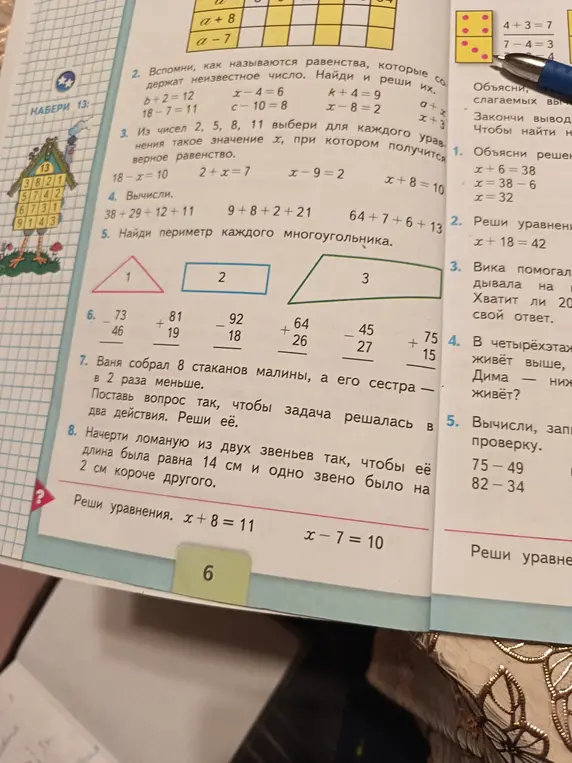 a + 8
a − 7
2. Вспомни, как называются равенства, которые со-
держат неизвестное число. Найди и реши их.
b + 2 = 12 x − 4 = 6 k + 4 = 9
18 − 7 = 11 c − 10 = 8 x − 8 = 2 x + 3
3. Из чисел 2, 5, 8, 11 выбери для каждого урав-
нения такое значение x, при котором получится
верное равенство.
18 − x = 10 2 + x = 7 x − 9 = 2 x + 8 = 10
4. Вычисли.
38 + 29 + 12 + 11 9 + 8 + 2 + 21 64 + 7 + 6 + 13
5. Найди периметр каждого многоугольника.
1 2 3
6. − 73 + 81 − 92 + 64 − 45 + 75
46 19 18 26 27 15
7. Ваня собрал 8 стаканов малины, а его сестра —
в 2 раза меньше.
Поставь вопрос так, чтобы задача решалась в
два действия. Реши её.
8. Начерти ломаную из двух звеньев так, чтобы её
длина была равна 14 см и одно звено было на
2 см короче другого.
?
Реши уравнения. x + 8 = 11 x − 7 = 10
6
НАБЕРИ 13:
13
3 8 2 1
5 7 4 2
6 7 3 1
9 1 4 3
4 + 3 = 7
7 − 4 = 3
Объясни,
слагаемых
Закончи вывод
Чтобы найти
1. Объясни
x + 6 = 38
x = 38 − 6
x = 32
2. Реши
x + 18 = 42
3. Вика
дывала на
Хватит ли
свой ответ.
4. В
живёт выше,
Дима —
живёт?
5. Вычисли,
проверку.
75 − 49
82 − 34
Реши